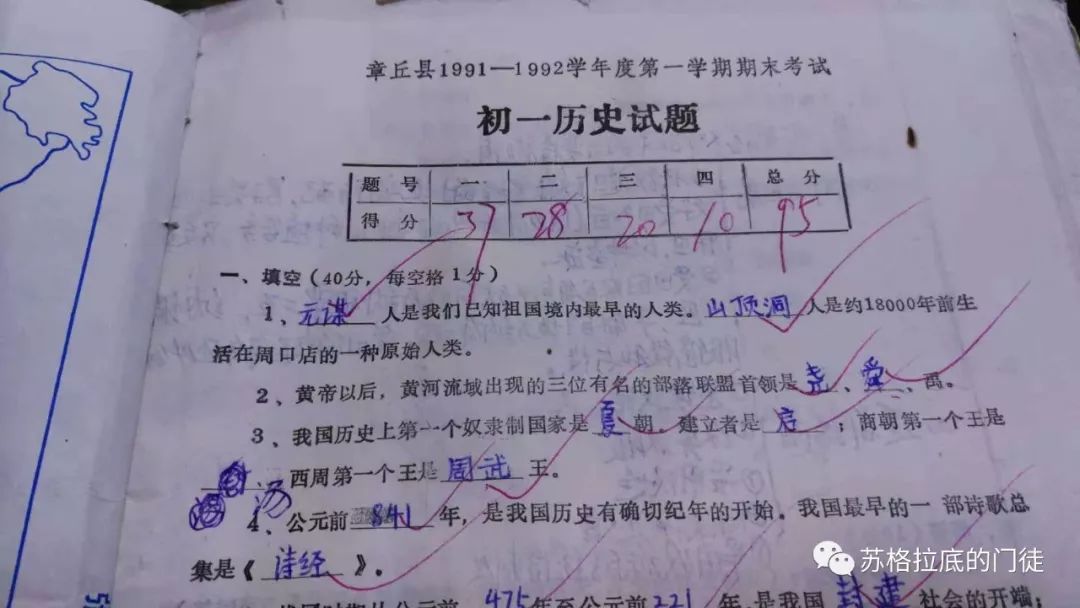 章丘县1991—1992学年度第一学期期末考试
初一历史试题
题号 一 二 三 四 总分
得分 37 28 20 10 95
一、填空（40分，每空格1分）
1、元谋人是我们已知祖国境内最早的人类。山顶洞人是约18000年前生
活在周口店的一种原始人类。
2、黄帝以后，黄河流域出现的三位有名的部落联盟首领是尧、舜、禹。
3、我国历史上第一个奴隶制国家是夏朝。建立者是启；商朝第一个王是
汤、西周第一个王是周武王。
4、公元前841年，是我国历史有确切纪年的开始。我国最早的一部诗歌总
集是《诗经》。
475年至公元前221年，是我国封建社会的开端；
苏格拉底的门徒